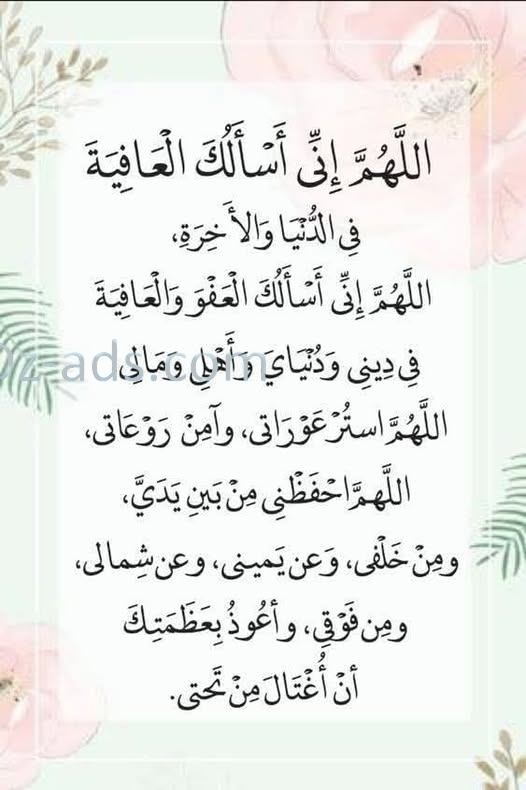 اللَّهُمَّ إِنِّي أَسْأَلُكَ الْعَافِيَةَ
فِي الدُّنْيَا وَالأَخِرَةِ،
اللَّهُمَّ إِنِّي أَسْأَلُكَ الْعَفْوَ وَالْعَافِيَةَ
فِي دِينِي وَدُنْيَايَ وَأَهْلِي وَمَالِي
اللَّهُمَّ استُرْ عَوْرَاتى، وآمِنْ رَوْعَاتى،
اللَّهمَّ احْفَظْنِى مِنْ بَينِ يَدَيَّ،
ومِنْ خَلْفى، وَعن يَمينى، وعن شِمالى،
ومِن فَوْقِى، وأعُوذُ بِعَظَمَتِكَ
أنْ أُغْتَالَ مِنْ تَحتى.